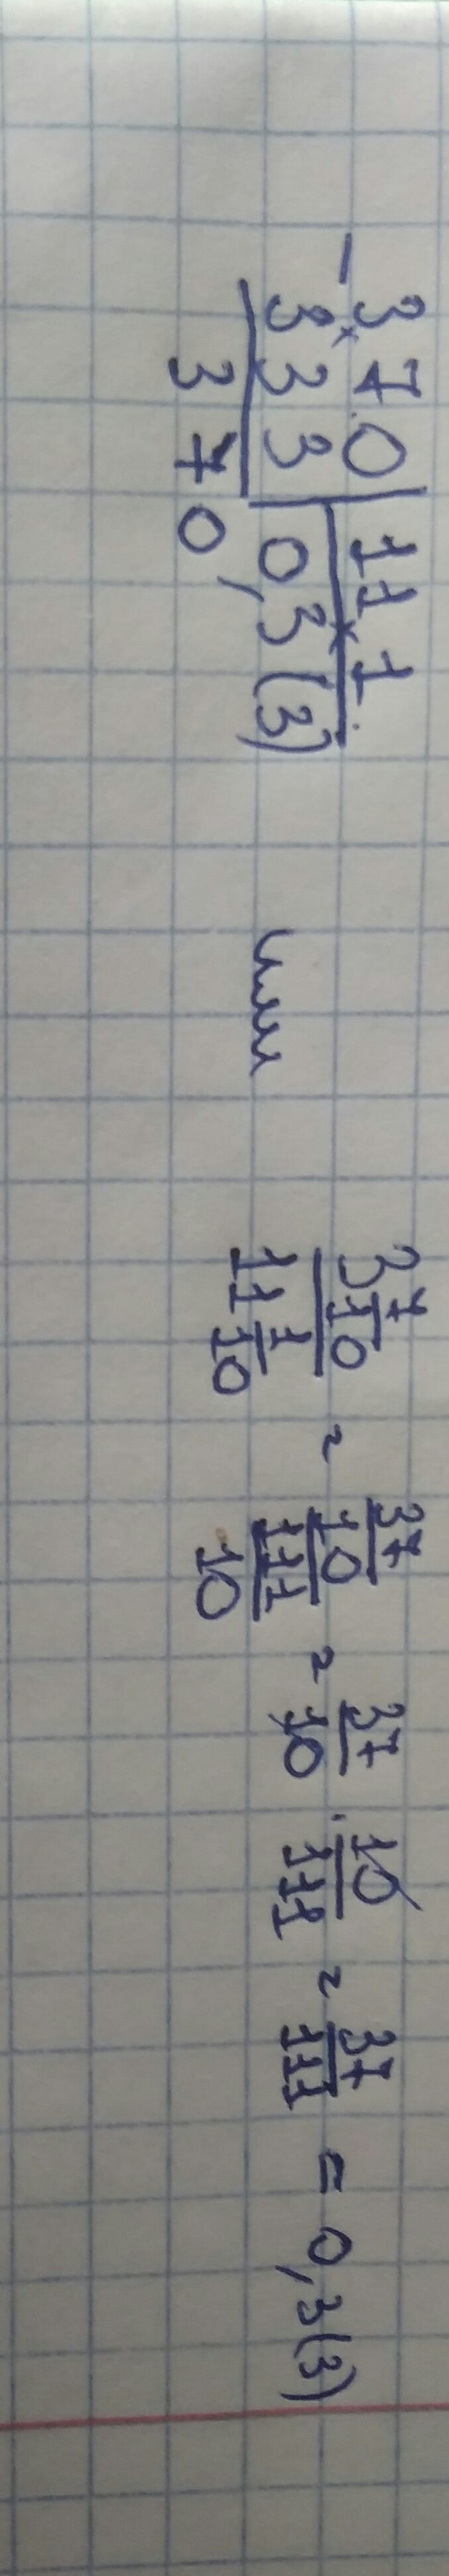 - 370 | 11 1
333 | 0,3(3)
370
или
3 7/10 / 11 1/10 = 37/10 / 111/10 = 37/10 · 10/111 = 37/111 = 0,3(3)